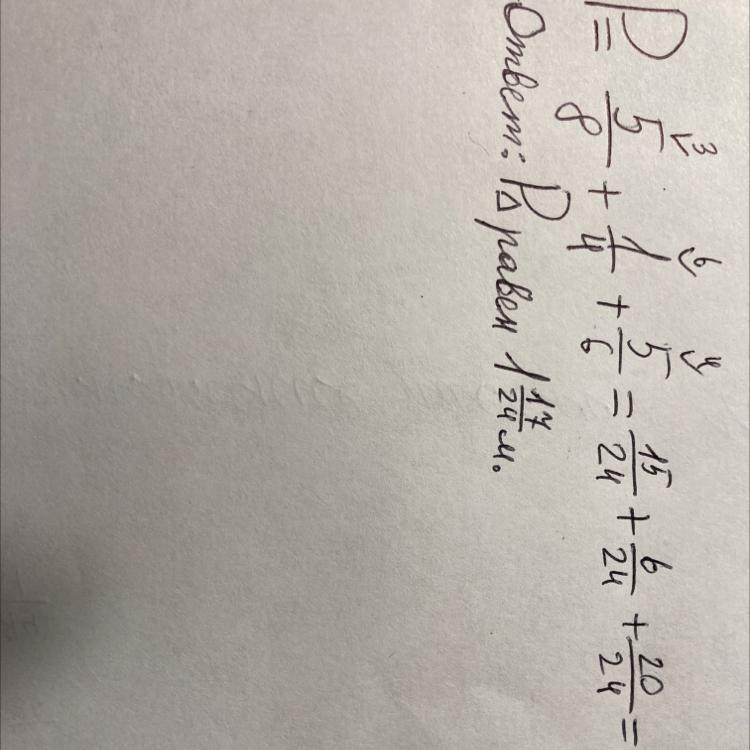 P = 5/8 + 1/4 + 5/6 = 15/24 + 6/24 + 20/24 =
Ответ: P△ равен 1 17/24 м.